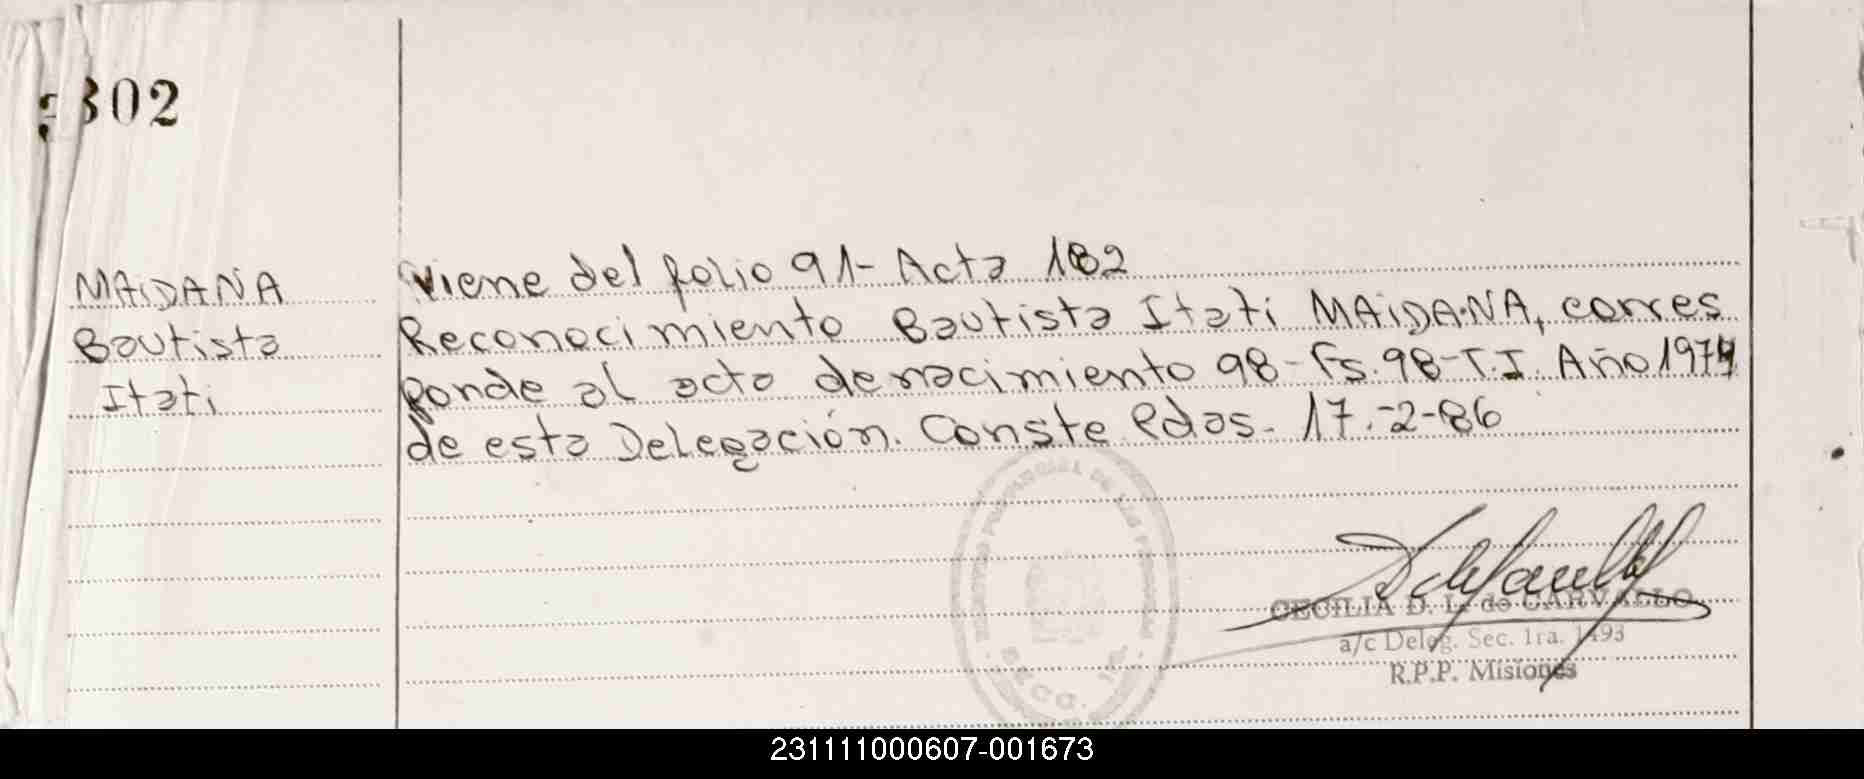 302
MAIDANA
Bautista
Itati
Viene del folio 91- Acta 182
Reconocimiento Bautista Itati MAIDANA, corres
ponde al acta de nacimiento 98- Fs. 98- T. I. Año 1974
de esta Delegación. Conste Pdas. 17.-2-86
REGISTRO PROVINCIAL DE LAS PERSONAS
SECC. 1RA.
CECILIA D. L. de CARVALLO
a/c Deleg. Sec. 1ra. 1493
R.P.P. Misiones
231111000607-001673